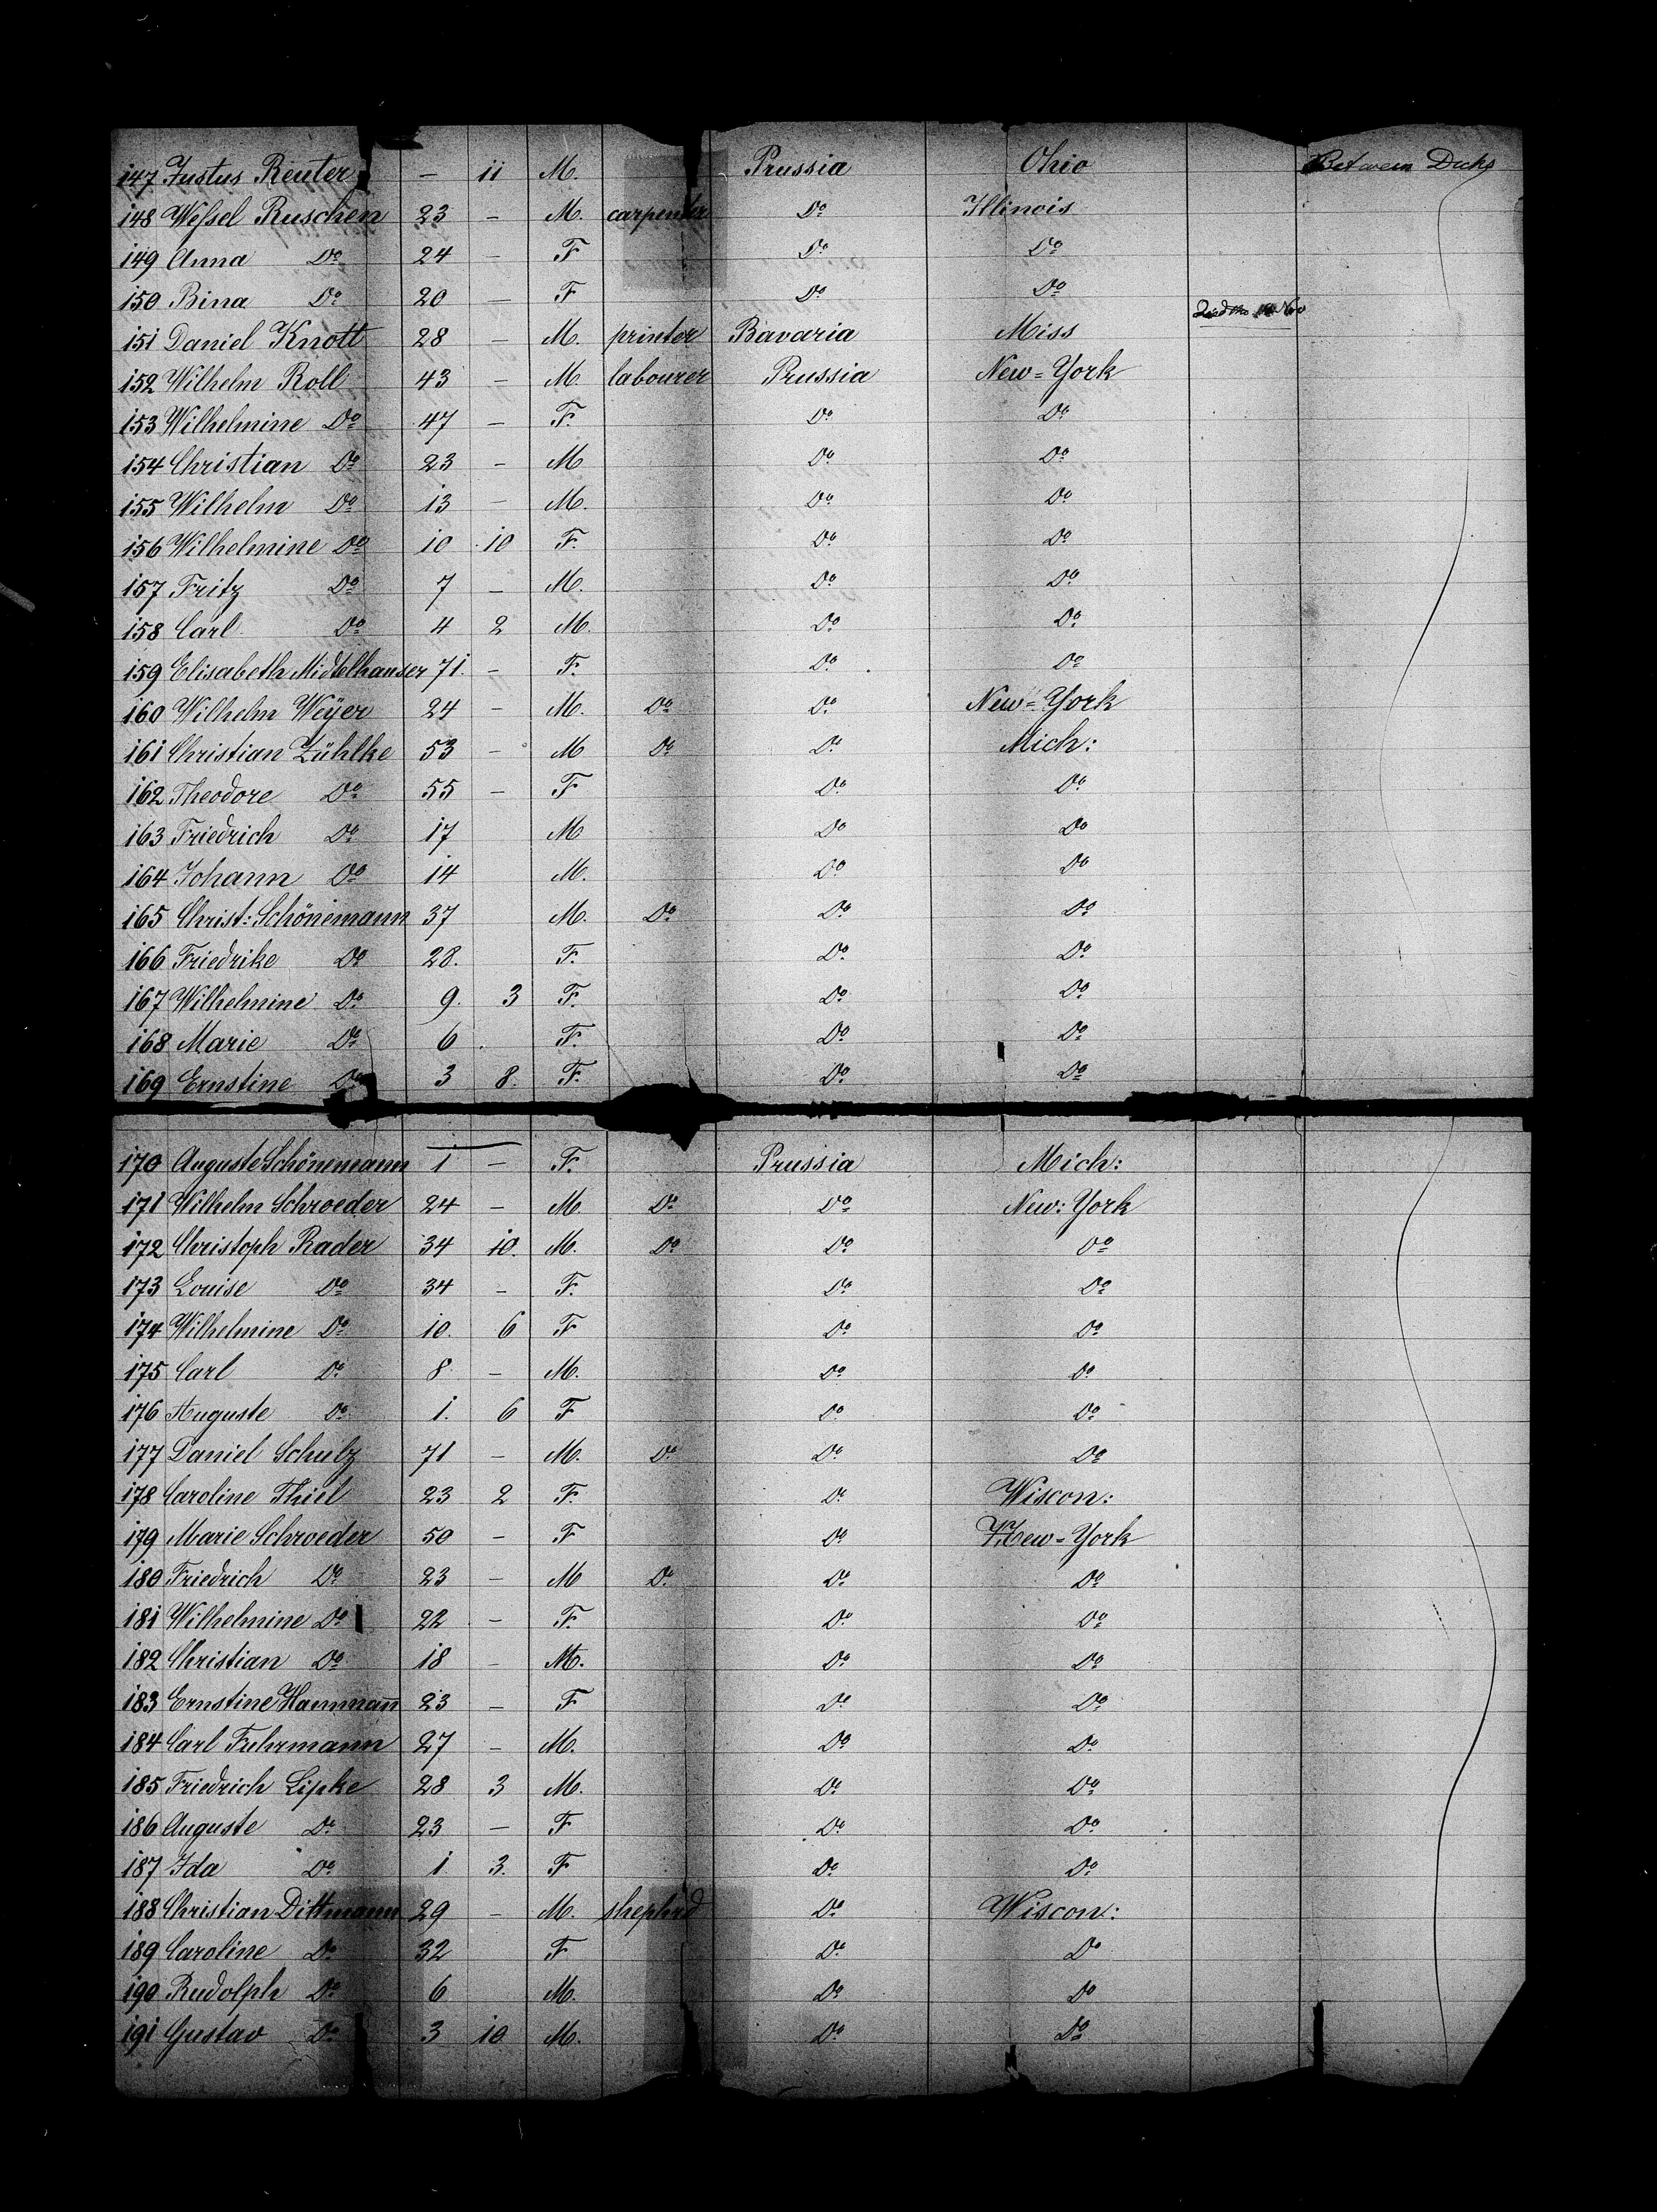 147 Justus Reuter – 11 M. Prussia Ohio Between Decks
148 Weſsel Ruschen 23 – M. carpenter Do Illinois
149 Anna Do 24 – F Do Do
150 Bina Do 20 – F Do Do
151 Daniel Knott 28 – M. printer Bavaria Miss
152 Wilhelm Roll 43 – M. labourer Prussia New=York
153 Wilhelmine Do 47 – F. Do Do
154 Christian Do 23 – M Do Do
155 Wilhelm Do 13 – M. Do Do
156 Wilhelmine Do 10 10 F. Do Do
157 Fritz Do 7 – M. Do Do
158 Carl Do 4 2 M. Do Do
159 Elisabeth Midtelhauser 71. – F. Do Do
160 Wilhelm Weÿer 24 – M. Do Do New=York
161 Christian Zühlke 53 – M Do Do Mich:
162 Theodore Do 55 – F Do Do
163 Friedrich Do 17 M Do Do
164 Johann Do 14 M. Do Do
165 Christ: Schönemann 37 M. Do Do Do
166 Friedrike Do 28. F. Do Do
167 Wilhelmine Do 9. 3 F. Do Do
168 Marie Do 6 F. Do Do
169 Ernstine Do 3 8. F. Do Do
170 Auguste Schönemann 1 – F. Prussia Mich:
171 Wilhelm Schroeder 24 – M Do Do New: York
172 Christoph Rader 34 10. M. Do Do Do
173 Louise Do 34 – F. Do Do
174 Wilhelmine Do 10. 6 F Do Do
175 Carl Do 8 – M. Do Do
176 Auguste Do 1. 6 F Do Do
177 Daniel Schulz 71 – M. Do Do Do
178 Caroline Thiel 23 2 F. Do Wiscon:
179 Marie Schroeder 50 – F Do New=York
180 Friedrich Do 23 – M Do Do Do
181 Wilhelmine Do 22 – F. Do Do
182 Christian Do 18 – M. Do Do
183 Ernstine Hammañ 23 – F Do Do
184 Carl Fuhrmann 27 – M. Do Do
185 Friedrich Lipke 28 3 M. Do Do
186 Auguste Do 23 – F Do Do
187 Ida Do 1 3. F Do Do
188 Christian Dittmann 29 – M. shepherd Do Wiscon:
189 Caroline Do 32 F Do Do
190 Rudolph Do 6 M. Do Do
191 Gustav Do 3 10 M. Do Do